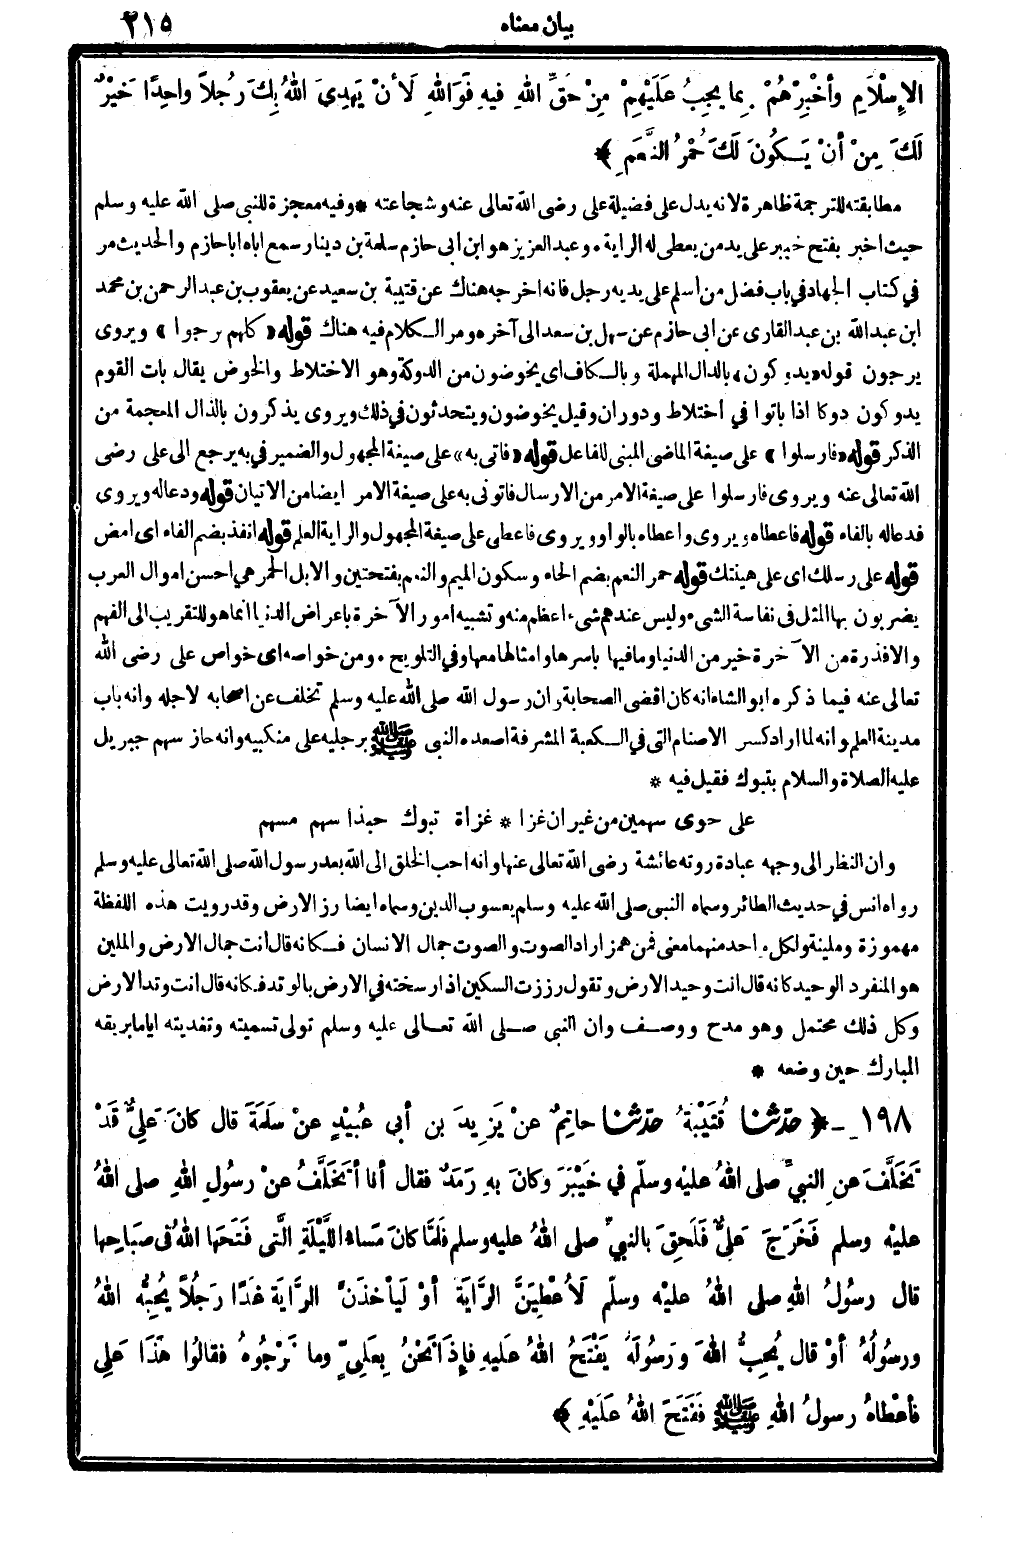 بيان معناه ٢١٥
الإسْلَامِ وأخْبِرْهُمْ بِما يجِبُ عَلَيْهِمْ مِنْ حَقِّ اللهِ فِيهِ فَوَاللهِ لَأنْ يَهْدِىَ اللهُ بِكَ رَجُلاً واحِدًا خَيْرٌ
لَكَ مِنْ أنْ يَكُونَ لَكَ حُمْرُ النَّعَمِ ﴾
مطابقته للترجمة ظاهرة لانه يدل على فضيلة على رضى الله تعالى عنه وشجاعته * وفيه معجزة للنبى صلى الله عليه وسلم
حيث اخبر بفتح خيبر على يد من يعطى له الراية . وعبد العزيز هو ابن ابى حازم سلمة بن دينار سمع اباه ابا حازم والحديث مر
في كتاب الجهاد في باب فضل من اسلم على يديه رجل فانه اخرجه هناك عن قتيبة بن سعيد عن يعقوب بن عبد الرحمن بن محمد
ابن عبد الله بن عبد القارى عن ابى حازم عن سهل بن سعد الى آخره ومر الكلام فيه هناك قوله «كلهم يرجوا» ويروى
يرجون قوله «يدوكون» بالدال المهملة وبالكاف اى يخوضون من الدوكة وهو الاختلاط والخوض يقال بات القوم
يدوكون دوكا اذا باتوا في اختلاط ودوران وقيل يخوضون ويتحدثون في ذلك ويروى يذكرون بالذال المعجمة من
الذكر قوله «فارسلوا» على صيغة الماضى المبنى للفاعل قوله «فاتى به» على صيغة المجهول والضمير في به يرجع الى على رضى
الله تعالى عنه ويروى فارسلوا على صيغة الامر من الارسال فاتونى به على صيغة الامر ايضا من الاتيان قوله ودعا له ويروى
فدعا له بالفاء قوله فاعطاه ويروى واعطاه بالواو ويروى فاعطى على صيغة المجهول والراية العلم قوله انفذ بضم الفاء اى امض
قوله على رسلك اى على هينتك قوله حمر النعم بضم الحاء وسكون الميم والنعم بفتحتين والابل الحمر هي احسن اموال العرب
يضربون بها المثل في نفاسة الشىء وليس عندهم شىء اعظم منه وتشبيه امور الآخرة باعراض الدنيا انما هو للتقريب الى الفهم
والا فذرة من الآخرة خير من الدنيا وما فيها باسرها وامثالها معها وفي التلويح . ومن خواصه اى خواص على رضى الله
تعالى عنه فيما ذكره ابو الشاء انه كان اقضى الصحابة وان رسول الله صلى الله عليه وسلم تخلف عن اصحابه لاجله وانه باب
مدينة العلم وانه لما اراد كسر الاصنام التى في الكعبة المشرفة اصعده النبى ﷺ برجليه على منكبيه وانه حاز سهم جبريل
عليه الصلاة والسلام بتبوك فقيل فيه *
على حوى سهمين من غير ان غزا * غزاة تبوك حبذا سهم مسهم
وان النظر الى وجهه عبادة روته عائشة رضى الله تعالى عنها وانه احب الخلق الى الله بعد رسول الله صلى الله تعالى عليه وسلم
رواه انس في حديث الطائر وسماه النبى صلى الله عليه وسلم يعسوب الدين وسماه ايضا رز الارض وقد رويت هذه اللفظة
مهموزة وملينة ولكل واحد منهما معنى فمن همز اراد الصوت والصوت جمال الانسان فكانه قال أنت جمال الارض والملين
هو المنفرد الوحيد كانه قال انت وحيد الارض وتقول رززت السكين اذا رسخته في الارض بالوتد فكانه قال انت وتد الارض
وكل ذلك محتمل وهو مدح ووصف وان النبى صلى الله تعالى عليه وسلم تولى تسميته وتغذيته اياما بريقه
المبارك حين وضعه *
١٩٨ ـ ﴿ حدّثنا قُتَيْبَةُ حدّثنا حاتِمٌ عنْ يَزِيدَ بن أبى عُبيْدٍ عنْ سَلَمَةَ قال كانَ عَلِيٌّ قَدْ
تَخَلَّفَ عنِ النبيِّ صلى اللهُ عليْه وسلّم في خَيْبَرَ وكانَ بهِ رَمَدٌ فقال أنا أتَخَلَّفُ عنْ رسُولِ اللهِ صلى اللهُ
عليْه وسلم فَخَرَجَ عَلِيٌّ فَلَحِقَ بالنبيِّ صلى اللهُ عليه وسلم فلَمَّا كانَ مَساءُ اللَّيْلَةِ الَّتى فَتَحَها اللهُ في صَبَاحِها
قال رسُولُ اللهِ صلى اللهُ عليْه وسلّم لَأُعْطِيَنَّ الرَّايَةَ أوْ لَيَأخُذَنَّ الرَّايَةَ غَدًا رَجُلاً يُحِبُّه اللهُ
ورسُولُهُ أوْ قال يُحِبُّ اللهَ ورَسُولَهُ يَفْتَحُ اللهُ عليهِ فإذَا نَحْنُ بِعَلِيٍّ وما نَرْجُوهُ فقالُوا هَذَا عَلِي
فأعْطاهُ رسولُ اللهِ ﷺ ففَتَحَ اللهُ عَلَيْهِ ﴾